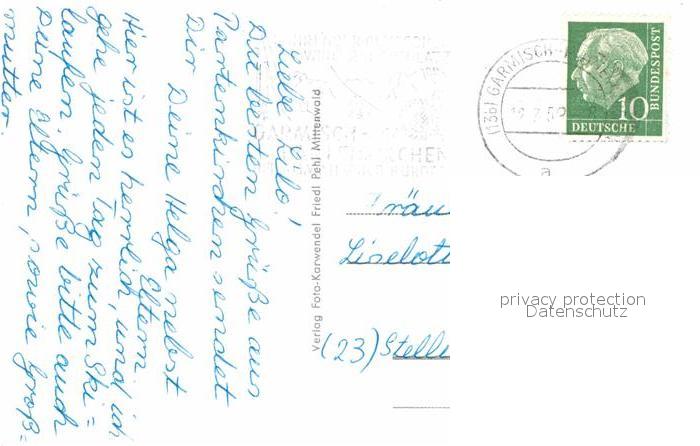 Liebe Lilo!
Die besten Grüße aus
Partenkirchen sendet
Dir
Deine Helga nebst
Eltern.
Hier ist es herrlich, und ich
gehe jeden Tag zum Ski=
laufen. Grüße bitte auch
Deine Eltern, sowie Groß=
mutter.
Verlag Foto-Karwendel Friedl Pehl Mittenwald
(13b) GARMISCH-
a
10
DEUTSCHE
BUNDESPOST
Fräu
Liselot
(23) Stell
privacy protection
Datenschutz